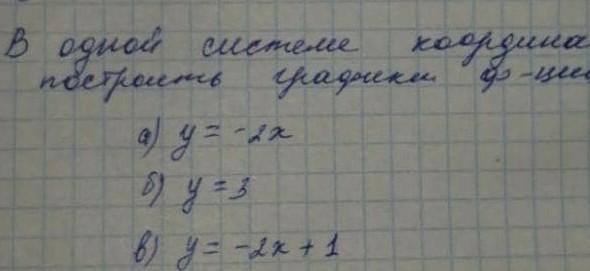 В одной системе координа
построить графики ф-ции
а) y = -2x
б) y = 3
в) y = -2x + 1